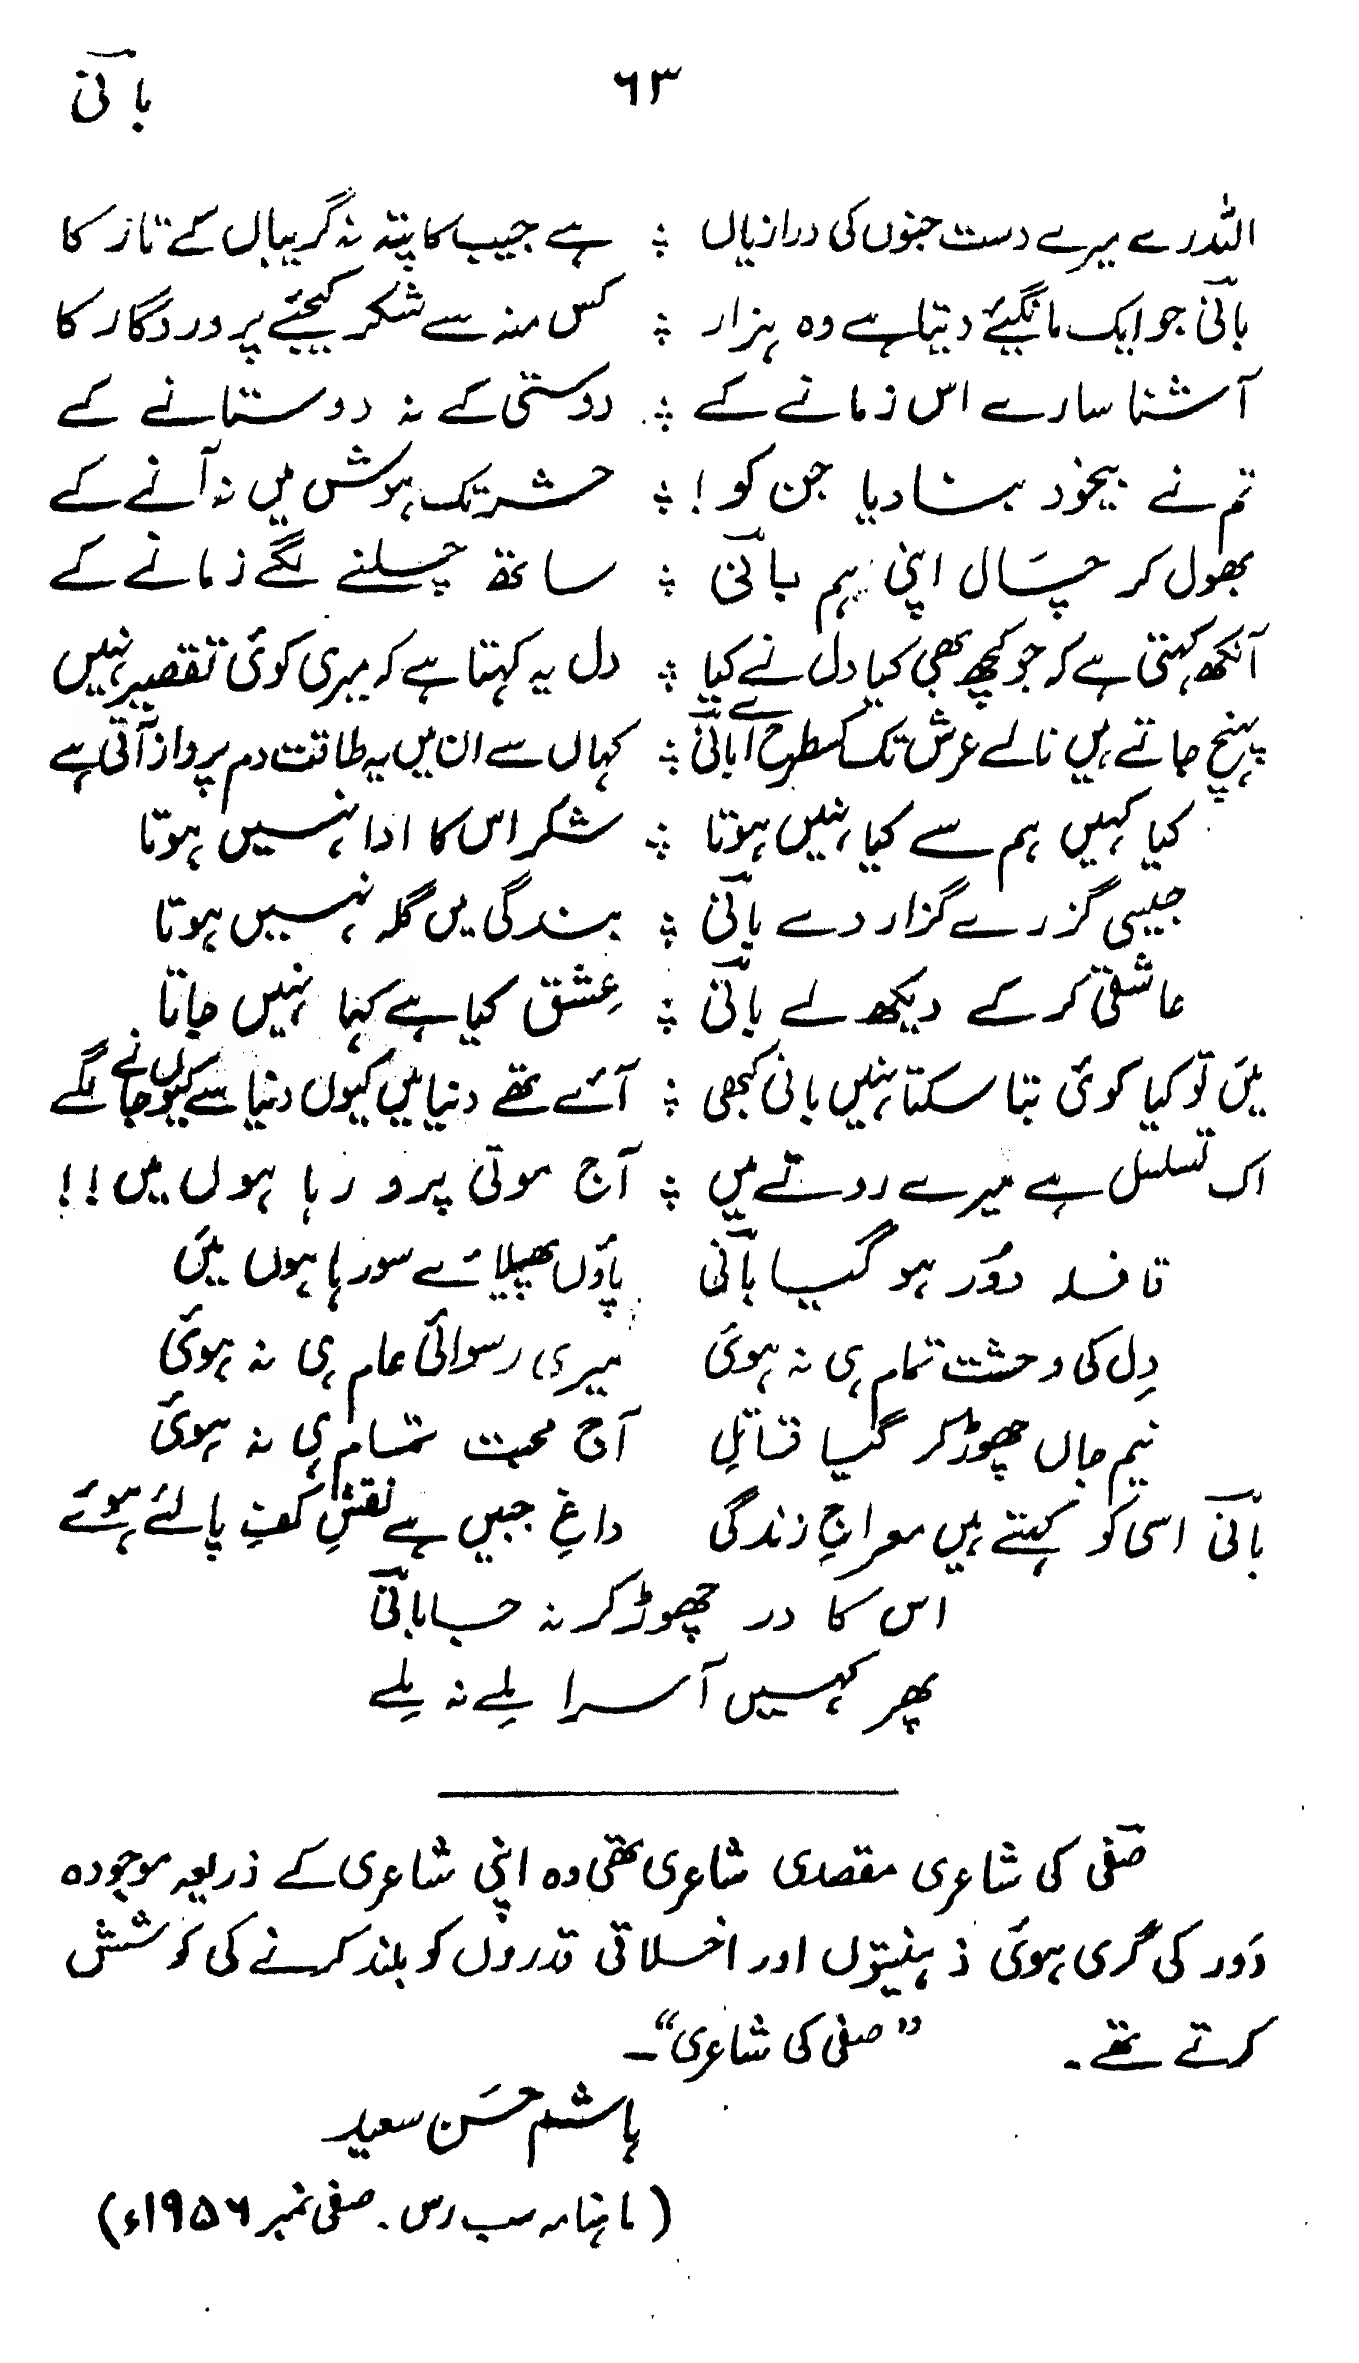 باقی ۶۳
اللہ رے میرے دست جنوں کی درازیاں ؛ ہے جیب کا پتہ نہ گریباں کے تار کا
باقی جو ایک مانگیئے دیتا ہے وہ ہزار ؛ کس منہ سے شکر کیجئے پروردگار کا
آشنا سارے اس زمانے کے ؛ دوستی کے نہ دوستانے کے
تم نے بیخود بنا دیا جن کو! ؛ حشر تک ہوش میں نہ آنے کے
بھول کر چال اپنی ہم باقی ؛ ساتھ چلنے لگے زمانے کے
آنکھ کہتی ہے کہ جو کچھ بھی کیا دل نے کیا ؛ دل یہ کہتا ہے کہ میری کوئی تقصیر نہیں
پہنچ جاتے ہیں نالے عرش تک کسطرح اے باقی ؛ کہاں سے ان میں یہ طاقت دم پرواز آتی ہے
کیا کہیں ہم سے کیا نہیں ہوتا ؛ شکر اس کا ادا نہیں ہوتا
جیسی گزرے گزار دے باقی ؛ بندگی میں گلہ نہیں ہوتا
عاشقی کر کے دیکھ لے باقی ؛ عِشق کیا ہے کہا نہیں جاتا
میں تو کیا کوئی بتا سکتا نہیں باقی کبھی ؛ آئے تھے دنیا میں کیوں دنیا سے کیوں جانے لگے
اک تسلسل ہے میرے رونے میں ؛ آج موتی پرو رہا ہوں میں!!
قافلہ دُور ہو گیا باقی پاؤں پھیلائے سو رہا ہوں میں
دِل کی وحشت تمام ہی نہ ہوئی میری رسوائی عام ہی نہ ہوئی
نیم جاں چھوڑ کر گیا قاتِل آج محبت تمام ہی نہ ہوئی
باقی اسی کو کہتے ہیں معراجِ زندگی داغِ جبیں ہے نقشِ کفِ پا لئے ہوئے
اس کا در چھوڑ کر نہ جا باقی
پھر کہیں آسرا مِلے نہ مِلے
صفی کی شاعری مقصدی شاعری تھی وہ اپنی شاعری کے ذریعہ موجودہ
دَور کی گری ہوئی ذہنیتوں اور اخلاقی قدروں کو بلند کرنے کی کوشش
کرتے تھے۔ ”صفی کی شاعری“۔
ہاشم حسَن سعید
(ماہنامہ سب رس۔ صفی نمبر ۱۹۵۶ء)